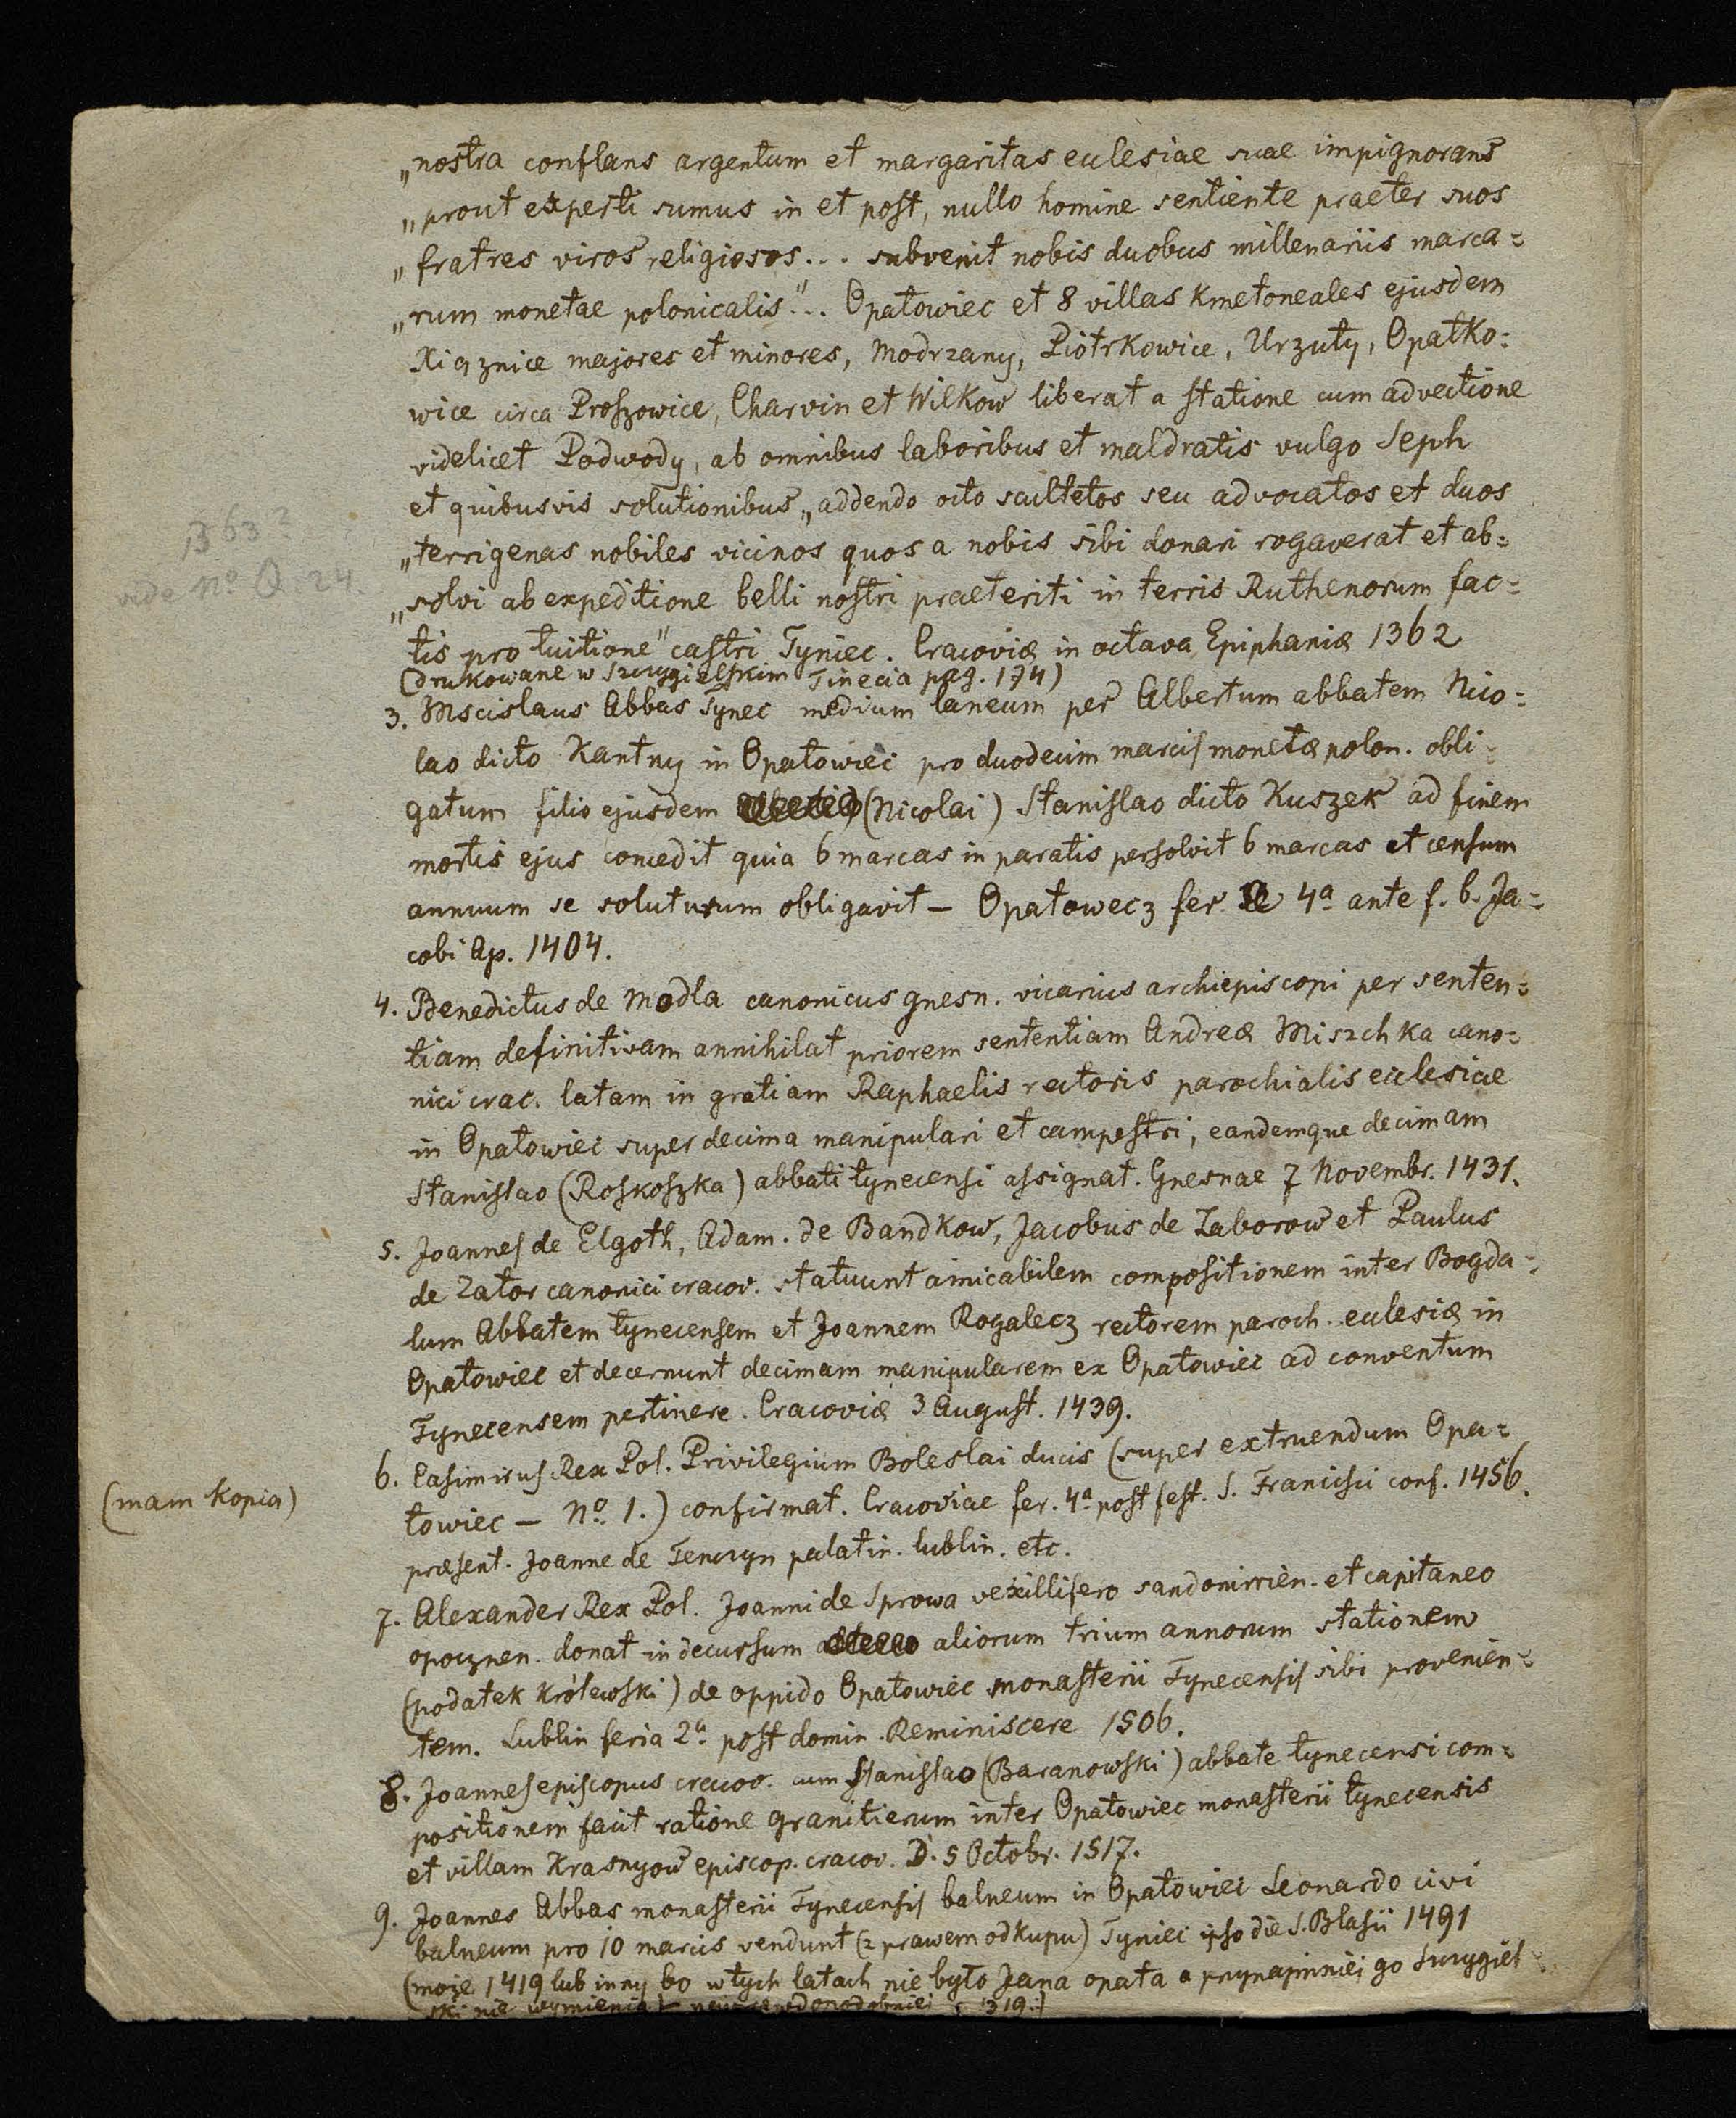 „nostra conflans argentum et margaritas eclesiae suae impignorans
„prout experti sumus in et post, nullo homine sentiente praeter suos
„fratres viros religiosos... subvenit nobis duobus millenariis marca=
„rum monetae polonicalis"... Opatowiec et 8 villas Kmetoneales ejusdem
Xiąznice majores et minores, Modrzany, Piotrkowice, Urzuty, Opatko=
wice circa Proszowice, Charvin et Wilkow liberat a statione cum advectione
videlicet Podwody, ab omnibus laboribus et maldratis vulgo Seph
et quibusvis solutionibus „addendo octo scultetos seu advocatos et duos
1363?
„terrigenas nobiles vicinos quos a nobis sibi donari rogaverat et ab=
vide No. Q. 24.
„solvi ab expeditione belli nostri praeteriti in terris Ruthenorum fac=
tis pro tuitione" castri Tyniec. Cracoviæ in octava Epiphaniæ 1362
(drukowane w Szczygielskim Tinecia pag. 174)
3. Mscislaus Abbas Tynec medium laneum per Albertum abbatem Nico=
lao dicto Kantny in Opatowiec pro duodecim marcis monetæ polon. obli=
gatum filio ejusdem (Nicolai) Stanislao dicto Kuszek ad finem
mortis ejus concedit quia 6 marcas in paratis persolvit 6 marcas et censum
annuum se soluturum obligavit — Opatowecz fer. 4a ante f. b. Ja=
cobi Ap. 1404.
4. Benedictus de Modla canonicus gnesn. vicarius archiepiscopi per senten=
tiam definitivam annihilat priorem sententiam Andreæ Miszchka cano=
nici crac. latam in gratiam Raphaelis rectoris parochialis eclesiae
in Opatowiec super decima manipulari et campestri, eandemque decimam
Stanislao (Roskoszka) abbati tynecensi assignat. Gnesnae 7 Novembr. 1431.
5. Joannes de Elgoth, Adam. de Bandkow, Jacobus de Zaborow et Paulus
de Zator canonici cracov. statuunt amicabilem compositionem inter Bogda=
lum Abbatem tynecensem et Joannem Rogalecz rectorem paroch. eclesiæ in
Opatowiec et decernunt decimam manipularem ex Opatowiec ad conventum
Tynecensem pertinere. Cracoviæ 3 August. 1439.
6. Casimirus Rex Pol. Privilegium Boleslai ducis (super extruendum Opa=
(mam kopią)
towiec — No. 1.) confirmat. Cracoviae fer. 4a post fest. S. Francisci conf. 1456.
præsent. Joanne de Tenczyn palatin. lublin. etc.
7. Alexander Rex Pol. Joanni de Sprowa vexillifero sandomirien. et capitaneo
opocznen. donat in decursum aliorum trium annorum stationem
(podatek królewski) de oppido Opatowiec monasterii Tynecensis sibi provenien=
tem. Lublin feria 2a post domin. Reminiscere 1506.
8. Joannes episcopus cracov. cum Stanislao (Baranowski) abbate tynecensi com=
positionem facit ratione granitierum inter Opatowiec monasterii tynecensis
et villam Krasnyow episcop. cracov. D. 5 Octobr. 1517.
9. Joannes Abbas monasterii Tynecensis balneum in Opatowiec Leonardo civi
balneum pro 10 marcis vendunt (z prawem odkupu) Tyniec ipso die S. Blasii 1491
(może 1419 lub inny bo w tych latach nie było Jana opata a przynajmniej go Szczygiel
ski nie wymienia) 1319.)